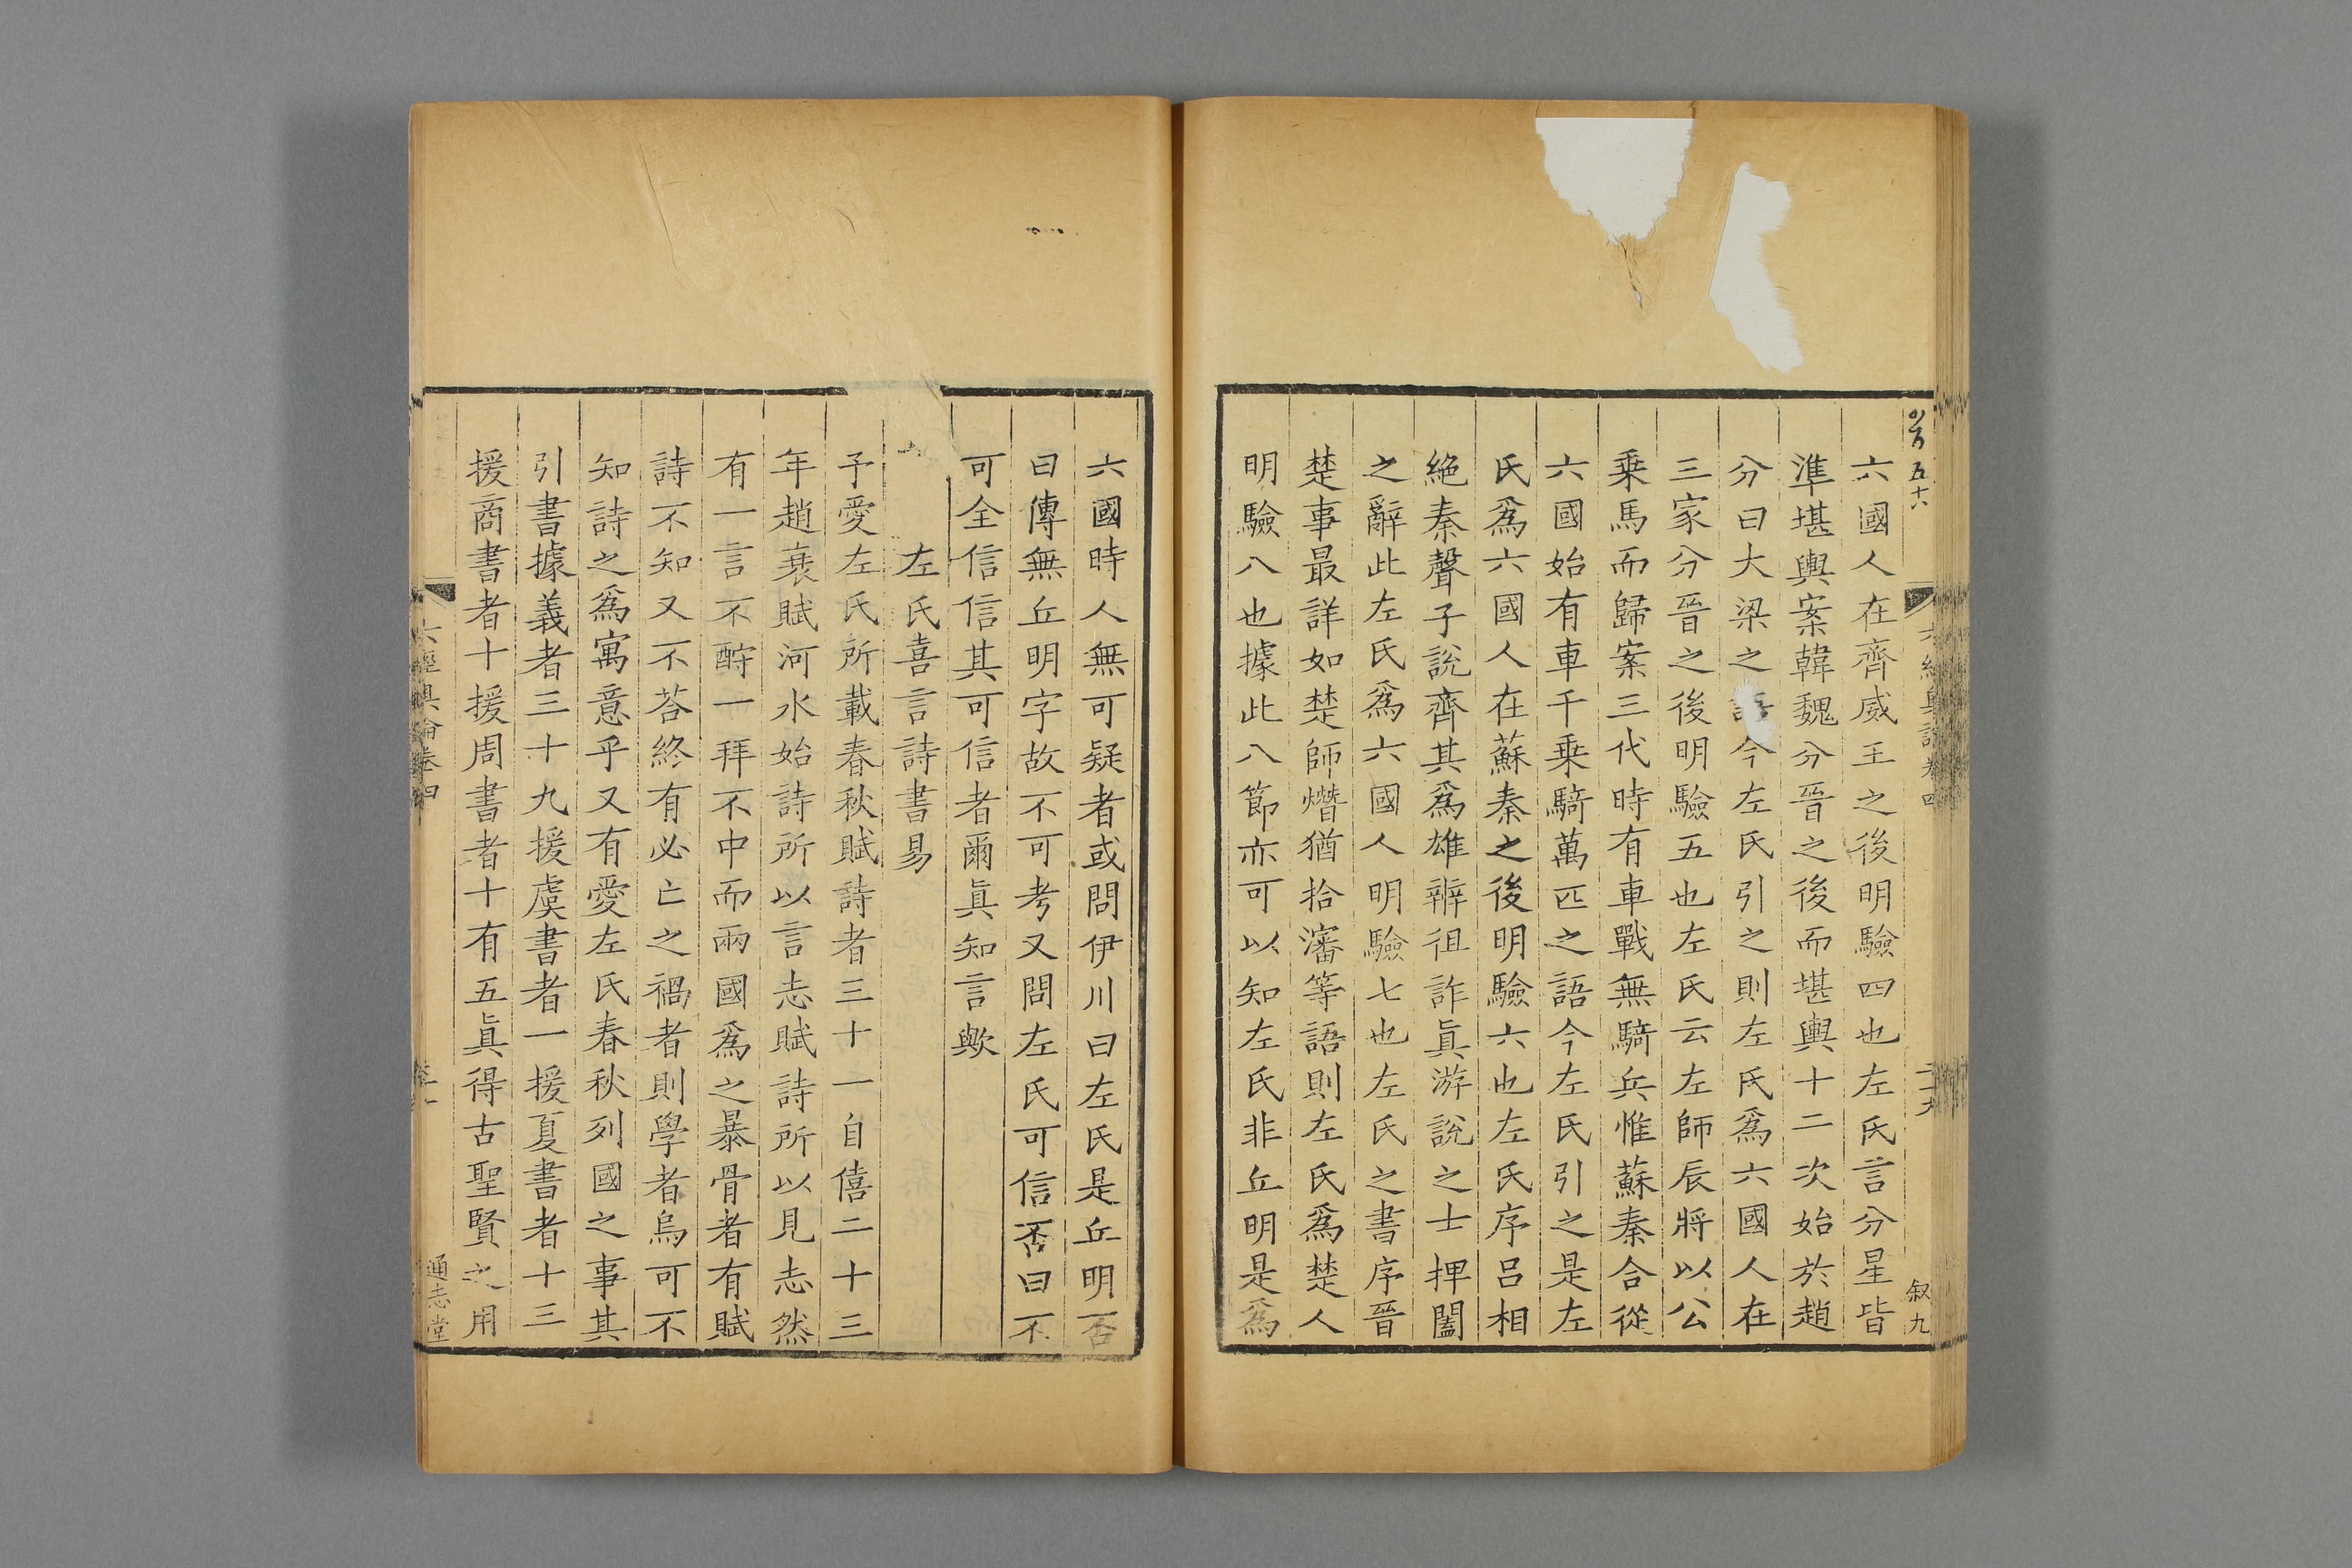 六國人在齊威王之後明驗四也左氏言分星皆
準堪輿案韓魏分晉之後而堪輿十二次始於趙
分曰大梁之語今左氏引之則左氏爲六國人在
三家分晉之後明驗五也左氏云左師辰將以公
乗馬而歸案三代時有車戰無騎兵惟蘇秦合從
六國始有車千乗騎萬匹之語今左氏引之是左
氏爲六國人在蘇秦之後明驗六也左氏序呂相
絶秦聲子説齊其爲雄辨徂詐眞游説之士押闔
之辭此左氏爲六國人明驗七也左氏之書序晉
楚事最詳如楚師熸猶拾瀋等語則左氏爲楚人
明驗八也據此八節亦可以知左氏非丘明是爲
六國時人無可疑者或問伊川曰左氏是丘明否
曰傳無丘明字故不可考又問左氏可信否曰不
可全信信其可信者爾眞知言歟
左氏喜言詩書易
予愛左氏所載春秋賦詩者三十一自僖二十三
年趙衰賦河水始詩所以言志賦詩所以見志然
有一言不酧一拜不中而兩國爲之暴骨者有賦
詩不知又不荅終有必亡之禍者則學者烏可不
知詩之爲寓意乎又有愛左氏春秋列國之事其
引書據義者三十九援虞書者一援夏書者十三
援商書者十援周書者十有五眞得古聖賢之用
六經奥論卷四
通志堂